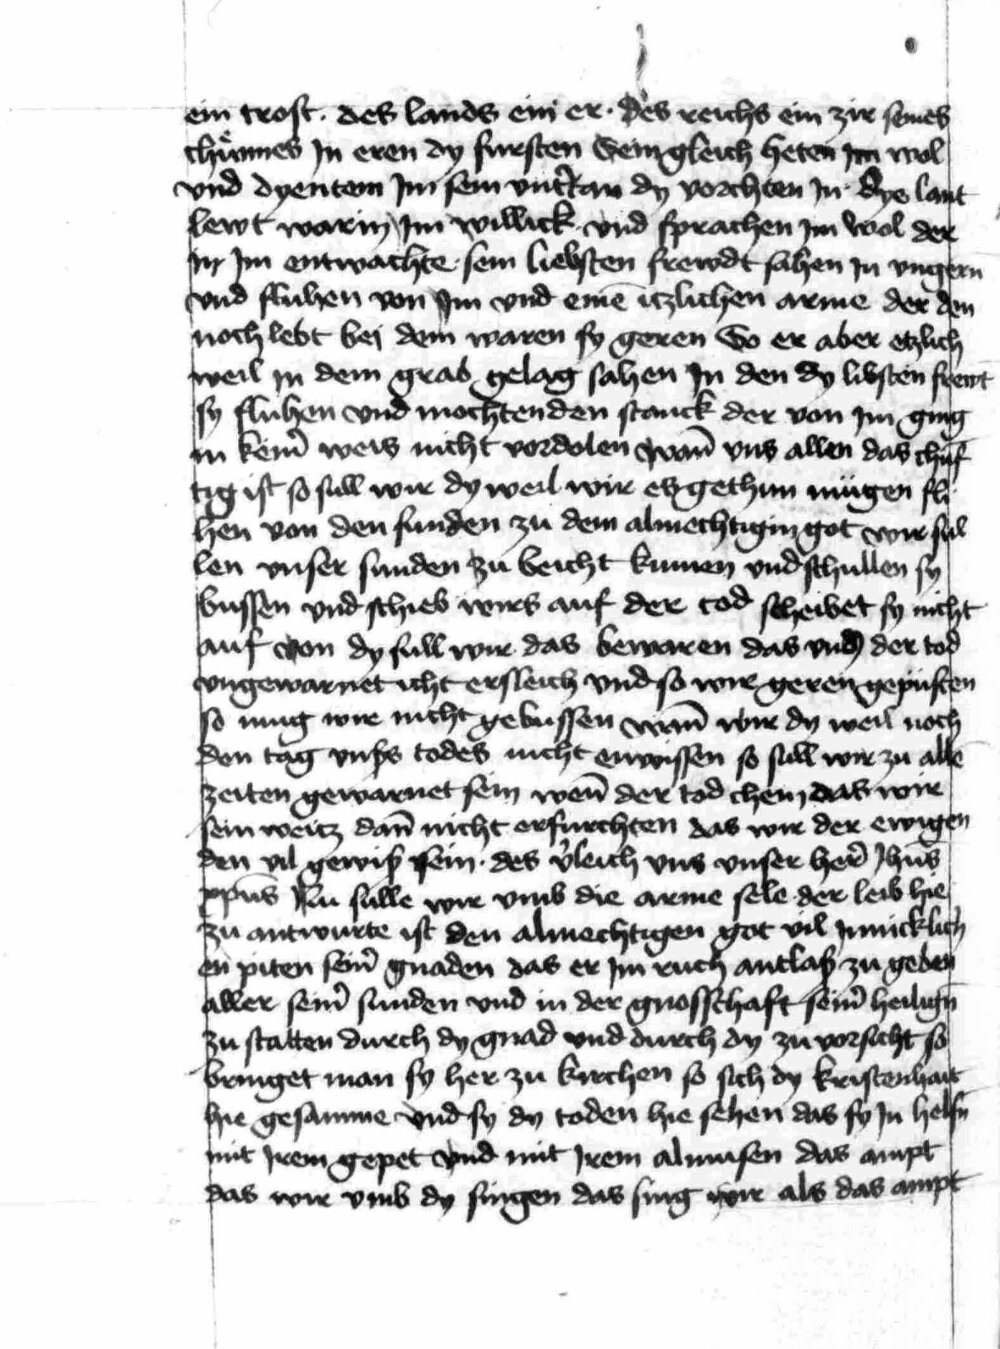 ein trost · des lands ein er · des reichs ein zir seines
chünnes In eren dy fursten Sein gleich heten Im wol
vnd dyentem Im sein vntertan dy vorchten In · dye lant
lewt warin Im willick · vnd sprachen Im wol der
In Im entwachte · sein liebsten frewdt sahen In vngern
vnd fluhen von Im vnd einē itzlichen arme der den
noch lebt bei dem waren sy geren So er aber etzlich
weil in dem grab gelag sahen In den dy libsten frewt
sy fluhen vnd mochten den stanck der von Im ging
in keiner weis nicht vordolen wan̄ vns allen das chūf
tig ist so sull wir dy weil wir es gethun mügen fli
hen von den sunden zu dem almechtigin got wir sul
len vnser sunden zu beicht kumen vnd schullen sy
bussen vnd schieb wirs auf der tod scheibet sy nicht
auf von dy sull wir das bewaren das vns der tod
vngewarnet icht ersleich vnd so wir geren gepusten
so mug wir nicht gebussen wan̄ wir dy weil noch
den tag vnsers todes nicht enwissen so sull wir zu allē
zeiten gewarnet sein wen̄ der tod chem das wir
sein weitz dan̄ nicht erfurchten das wir der ewigen
den vil gewiß sein · des v̓leich vns vnser her̓ Jhūs
xpūs Nu sulle wir vmb die arme sele der leib hie
zu antwurte ist den almechtigen got vil Innicklich
en piten sein̓ gnaden das er Im ruch antlaß zu geben
aller sein̓ sunden vnd in der gnosschaft sein̓ heilign̄
zu statten durch dy gnad vnd durch dy zuvorsicht so
bringet man sy her zu kirchen so sich dy kristenhait
hie gesamme vnd sy dy toden hie sehen das sy In helfn̄
mit Irem gepet vnd mit Irem almusen das ampt
das wir vmb dy singen das sing wir als das ampt